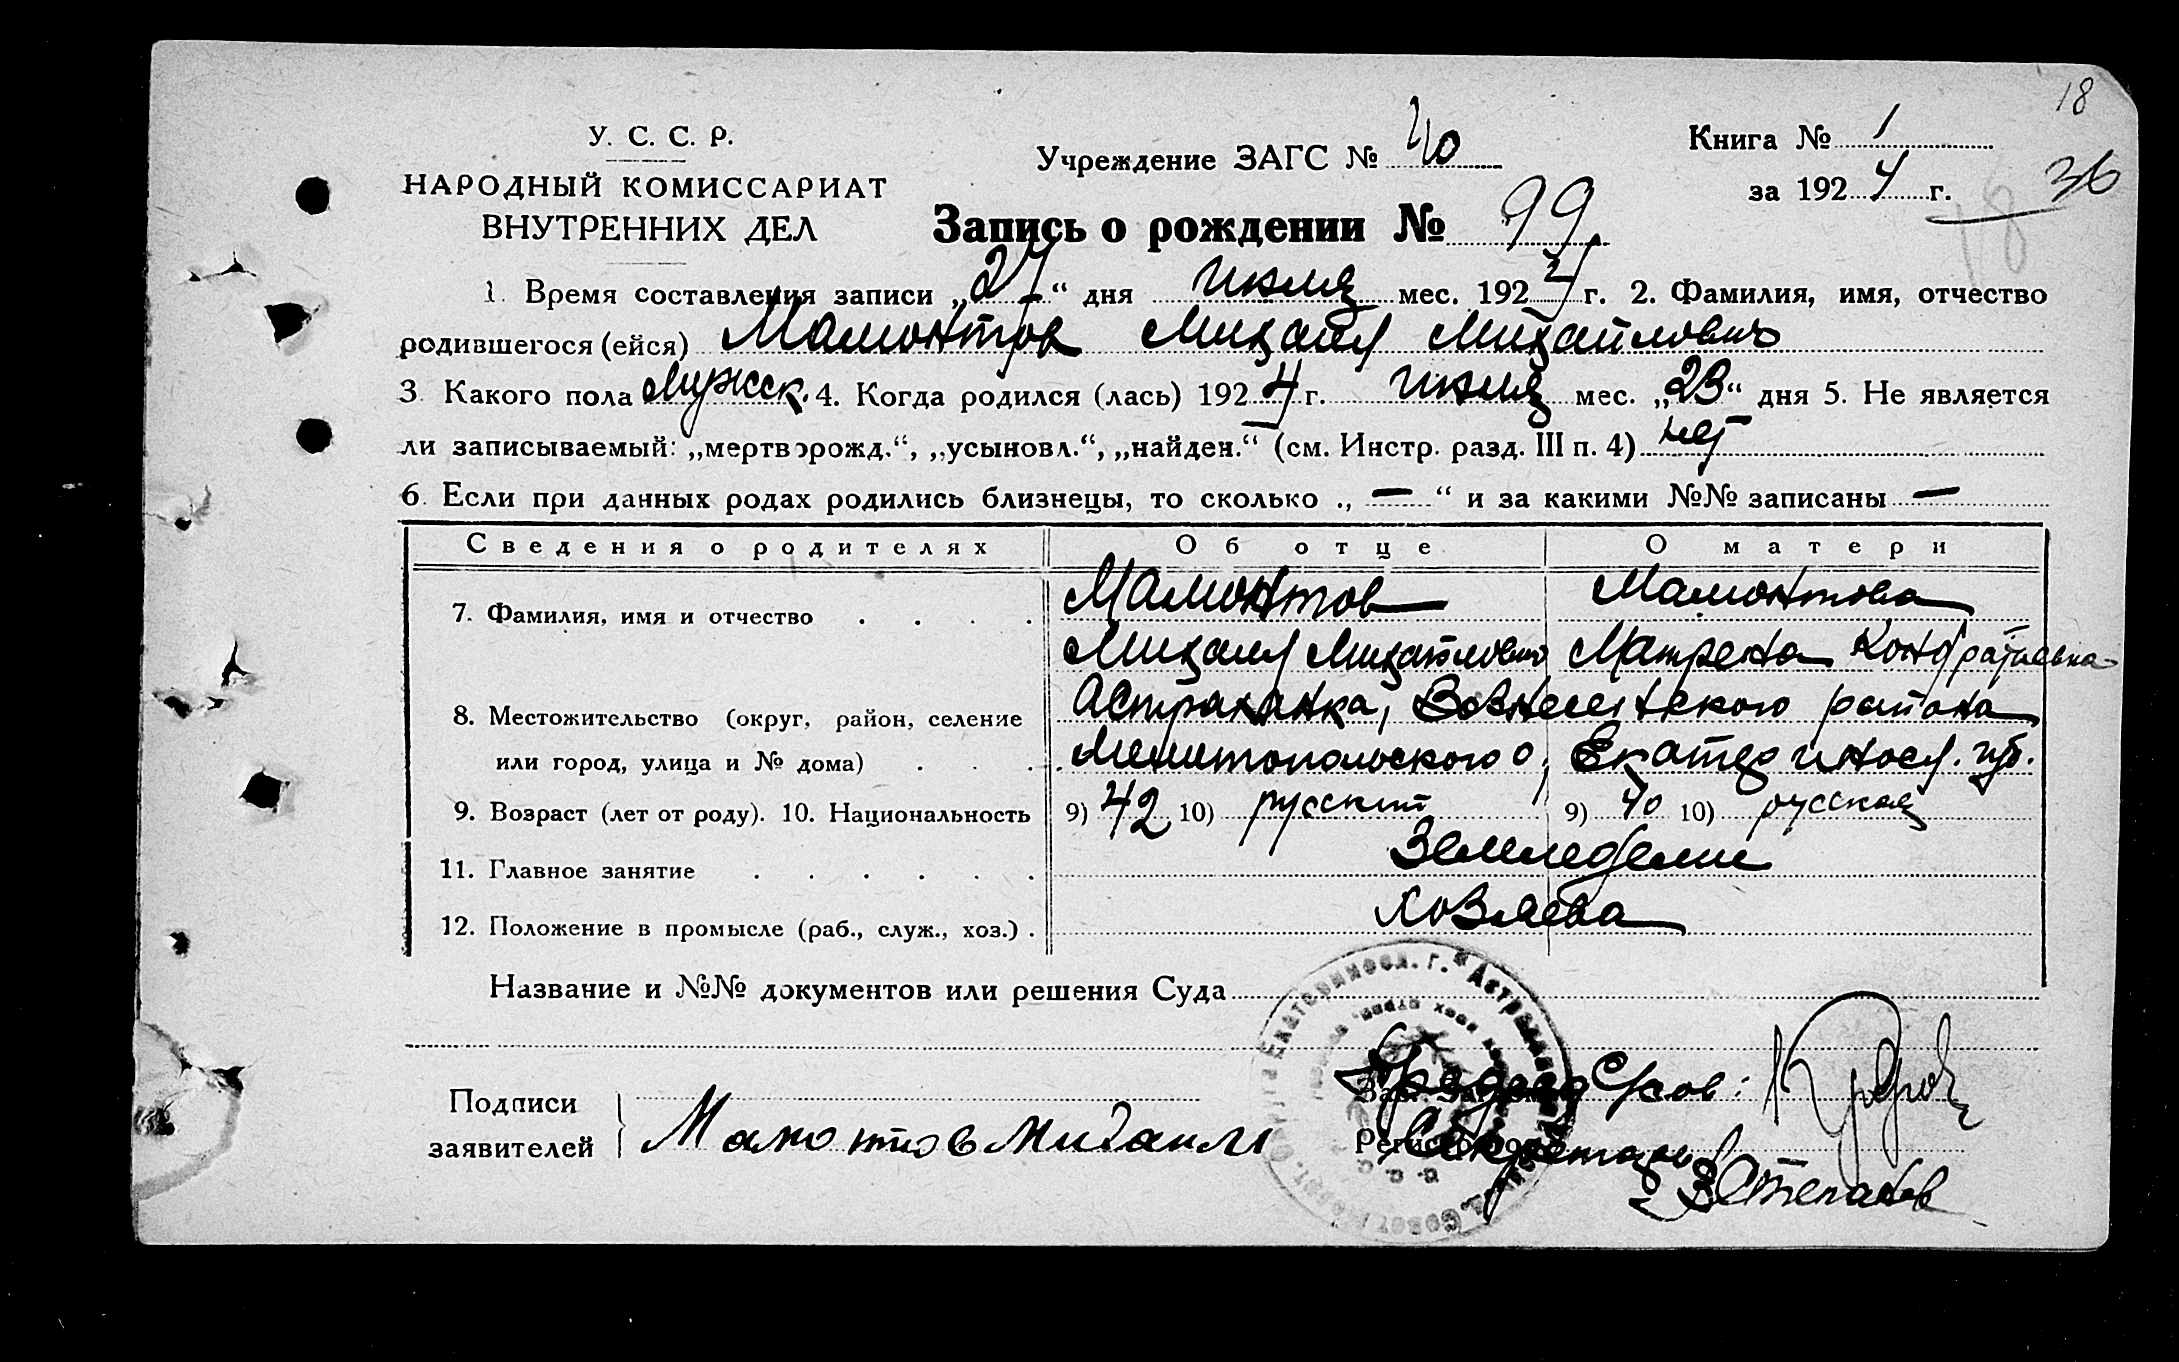 18
У. С. С. Р.
НАРОДНЫЙ КОМИССАРИАТ
ВНУТРЕННИХ ДЕЛ
Учреждение ЗАГС № 40
Книга № 1
за 1924 г.
36
18
Запись о рождении № 99
1. Время составления записи „24“ дня июля мес. 1924 г. 2. Фамилия, имя, отчество
родившегося (ейся) Мамонтов Михаил Михайлович
3. Какого пола Мужск. 4. Когда родился (лась) 1924 г. июля мес. „23“ дня 5. Не является
ли записываемый: „мертворожд.“, „усыновл.“, „найден.“ (см. Инстр. разд. III п. 4) нет
6. Если при данных родах родились близнецы, то сколько „ — “ и за какими №№ записаны —
Сведения о родителях Об отце О матери
7. Фамилия, имя и отчество . . . . Мамонтов Мамонтова
Михаил Михайлович Матрена Кондратиевна
8. Местожительство (округ, район, селение Астраханка, Вознесенского района
или город, улица и № дома) . . . Мелитопольского о, Екатериносл. губ.
9. Возраст (лет от роду). 10. Национальность 9) 42 10) русский 9) 40 10) русская
11. Главное занятие . . . . . . Земледелие
12. Положение в промысле (раб., служ., хоз.) . Хозяева
Название и №№ документов или решения Суда
Подписи
заявителей
Мамонтов Михаил
Секретарь
Степанов